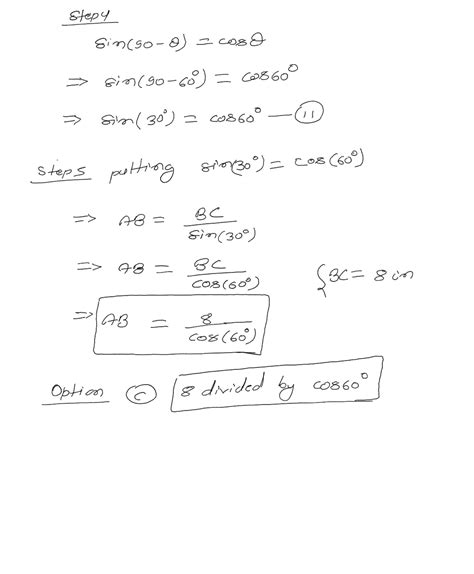 Step4
sin(90-θ) = cosθ
⇒ sin(90-60°) = cos60°
⇒ sin(30°) = cos60° — (11)
Step5 putting sin(30°) = cos(60°)
⇒ AB = BC / sin(30°)
⇒ AB = BC / cos(60°) {BC = 8 in
⇒ AB = 8 / cos(60°)
Option (C) 8 divided by cos60°